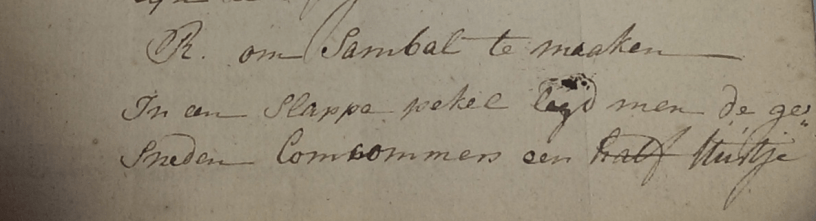 R. om Sambal te maaken
In een Slappe pekel legd men de ge„
Sneden Comcommers een half